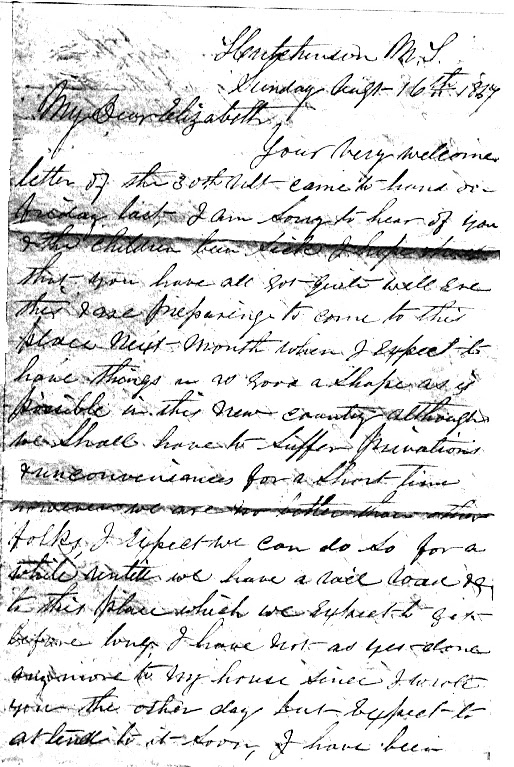 Hutchinson M.T.
Sunday Augt 16th 1857
My Dear Elizabeth,
Your very welcome
letter of the 30th Ult came to hand on
Friday last I am sorry to hear of you
& the children been sick I hope
that you have all got quite well ere
this & are prepareing to come to this
place next month when I expect to
have things in as good a shape as is
possible in this new country although
we shall have to suffer privations
& inconveniances for a short time
however we are no better than other
folks, I expect we can do so for a
while untill we have a rail road &c
to this place which we expect to get
before long I have not as yet done
any more to my house since I wrote
you the other day but expect to
attend to it soon, I have been